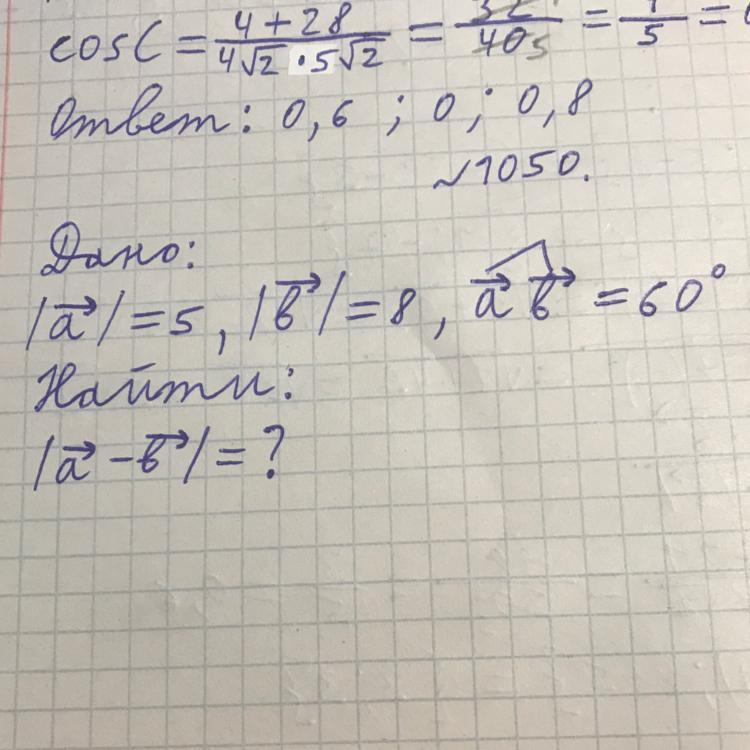 cos C = (4 + 28)/(4√2 · 5√2) = 32/40 5 = 4/5 =
Ответ: 0,6 ; 0 ; 0,8
~1050.
Дано:
|a⃗| = 5, |b⃗| = 8, a⃗ b⃗ = 60°
Найти:
|a⃗ - b⃗| = ?